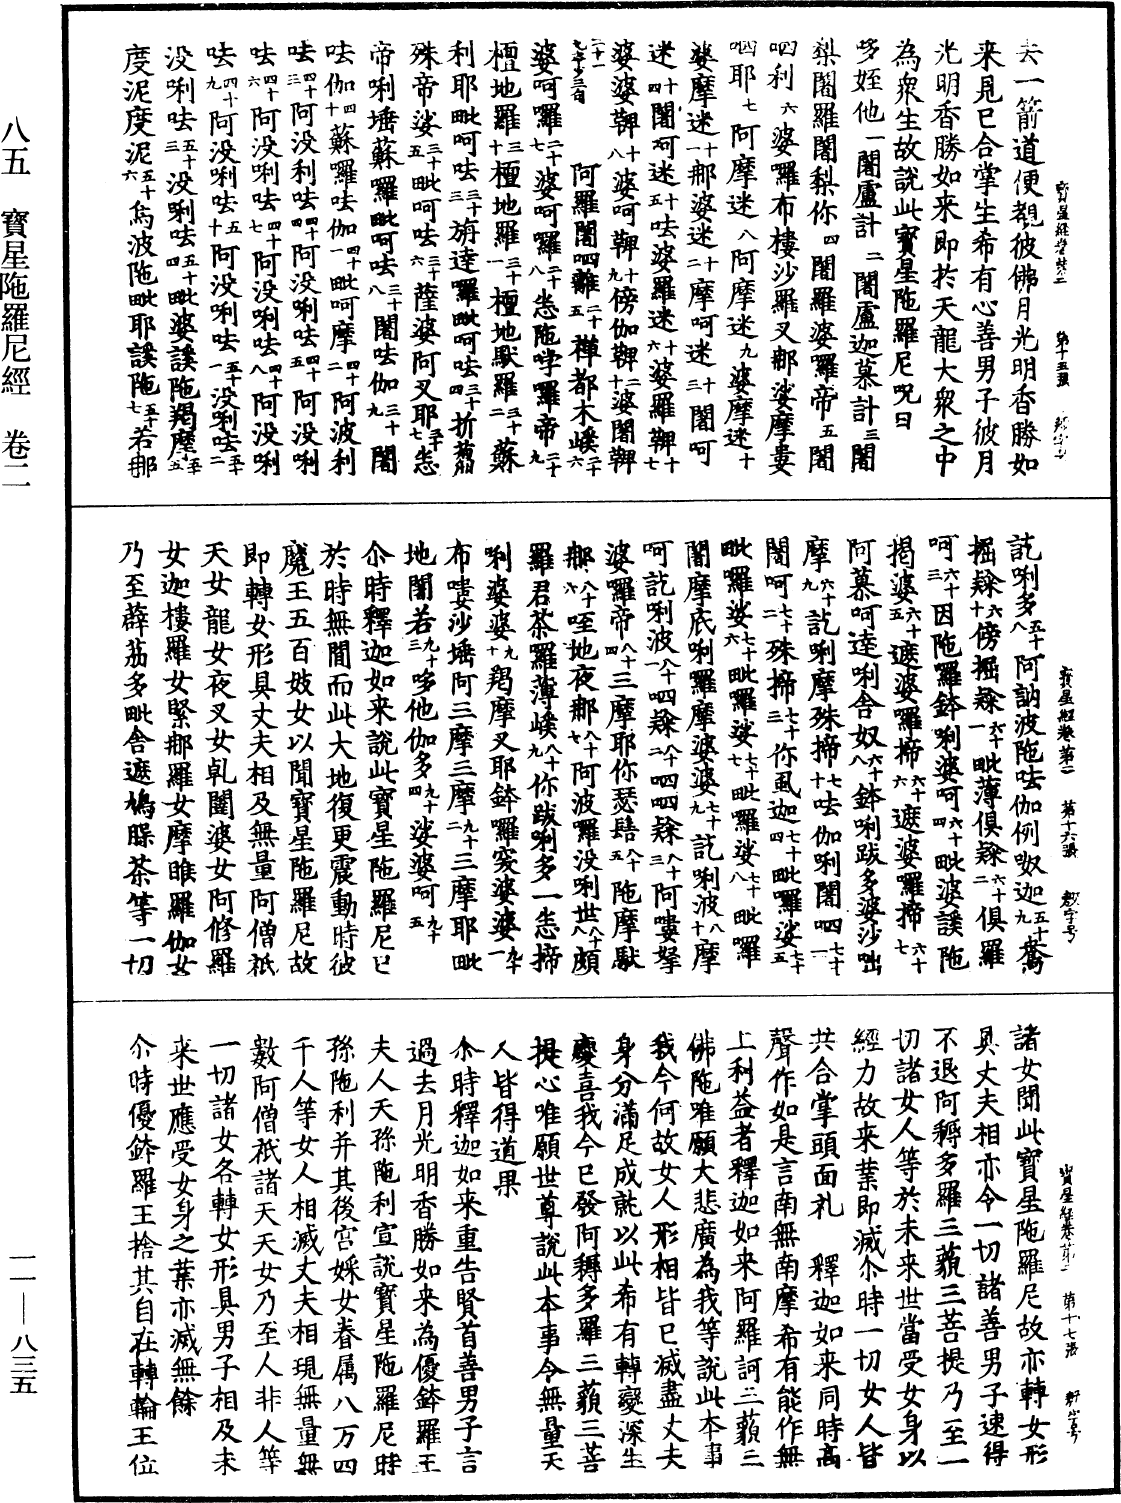 去一箭道便覩彼佛月光明香勝如
来見已合掌生希有心善男子彼月
光明香勝如来即於天龍大衆之中
為衆生故說此寶星陁羅尼呪曰
哆姪他一闍盧計二闍盧迦慕計三闍
梨闍羅闍梨你四闍羅婆囉帝五闍
呬利六婆囉布樓沙羅叉郍娑摩婁
呬耶七阿摩迷八阿摩迷九婆摩迷十
婆摩迷十一郍婆迷十二摩呵迷十三闍呵
迷十四闍呵迷十五呿婆羅迷十六婆羅鞞十七
婆婆鞞十八婆呵鞞十九傍伽鞞二十婆闍鞞
二十一阿羅闍呬離二十五樺都木嵠二十六
婆呵囉二十七婆呵囉二十八恙陁啰羅帝二十九
檀地羅三十檀地羅三十一檀地䭾羅三十二蘇
利耶毗呵呿三十三旃達羅毗呵呿三十四折蒭
殊帝娑三十五毗呵呿三十六薩婆阿叉耶三十七恙
帝唎埵蘇羅毗呵呿三十八闍呿伽三十九闍
呿伽四十蘇囉呿伽四十一毗呵摩四十二阿波利
呿四十三阿没利呿四十四阿没唎呿四十五阿没唎
呿四十六阿没唎呿四十七阿没唎呿四十八阿没唎
呿四十九阿没唎呿五十阿没唎呿五十一没唎呿五十二
没唎呿五十三没唎呿五十四毗婆謑陁羯摩五十五
度泥度泥五十六烏波陁毗耶謑陁五十七若郍
訖唎多五十八阿訥波陁呿伽例呶迦五十九鴦
掘䅣六十傍掘䅣六十一毗薄俱䅣六十二俱羅
呵六十三因陁羅鉢唎婆呵六十四毗婆謑陁
揭婆六十五遮婆羅揥六十六遮婆羅揥六十七
阿慕呵達唎舍奴六十八鉢唎跋多婆沙咄
摩六十九訖唎摩殊揥七十呿伽唎闍呬七十一
闍呵七十二殊揥七十三你虱迦七十四毗羅娑七十五
毗羅娑七十六毗羅娑七十七毗羅娑七十八毗囉
闍摩底唎羅摩婆婆七十九訖唎波八十摩
呵訖唎波八十一呬䅣八十二呬呬䅣八十三阿嘍拏
婆羅帝八十四三摩耶你瑟䭒八十五陁摩䭾
郍八十六咥地夜郍八十七阿波羅没唎世八十八頗
羅君荼羅薄嵠八十九你跋唎多一恙揥
唎婆婆九十羯摩叉耶鉢囉突婆婆九十一
布嘍沙埵阿三摩三摩九十二三摩耶毗
地闍若九十三哆他伽多九十四娑婆呵九十五
尒時釋迦如来說此寶星陁羅尼已
於時無間而此大地復更震動時彼
魔王五百妓女以聞寶星陁羅尼故
即轉女形具丈夫相及無量阿僧祇
天女龍女夜叉女乹闥婆女阿修羅
女迦樓羅女緊郍羅女摩睺羅伽女
乃至薜茘多毗舍遮鳩䏽荼等一切
諸女聞此寶星陁羅尼故亦轉女形
具丈夫相亦令一切諸善男子速得
不退阿耨多羅三藐三菩提乃至一
切諸女人等於未来世當受女身以
經力故来業即滅尒時一切女人皆
共合掌頭面礼釋迦如来同時高
聲作如是言南無南摩希有能作無
上利益者釋迦如来阿羅訶三藐三
佛陁唯願大悲廣為我等說此本事
我今何故女人形相皆已滅盡丈夫
身分滿足成就以此希有轉變深生
慶喜我今已發阿耨多羅三藐三菩
提心唯願世尊說此本事令無量天
人皆得道果
尒時釋迦如来重告賢首善男子言
過去月光明香勝如来為優鉢羅王
夫人天孫陁利宣說寶星陁羅尼時
孫陁利并其後宮婇女眷属八万四
千人等女人相滅丈夫相現無量無
數阿僧祇諸天天女乃至人非人等
一切諸女各轉女形具男子相及未
来世應受女身之業亦滅無餘
尒時優鉢羅王捨其自在轉輪王位
八五 寶星陁羅尼經 卷二
一一—八三五
寶星經卷第二 第十六張
第十五張
第十七張